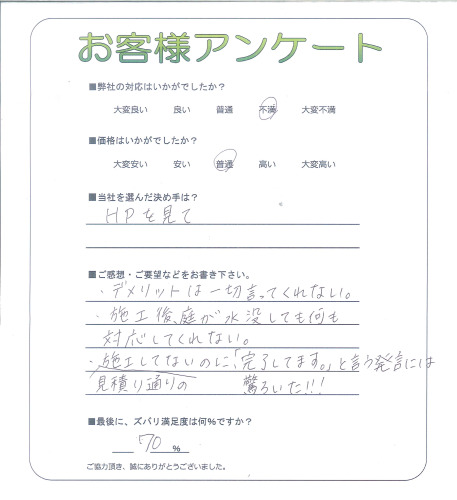 お客様アンケート
■弊社の対応はいかがでしたか？
大変良い 良い 普通 不満 大変不満
■価格はいかがでしたか？
大変安い 安い 普通 高い 大変高い
■当社を選んだ決め手は？
HPを見て
■ご感想・ご要望などをお書き下さい。
・デメリットは一切言ってくれない。
・施工後、庭が水没しても何も
対応してくれない。
・施工してないのに、「完了してます。」と言う発言には
見積り通りの 驚ろいた!!!
■最後に、ズバリ満足度は何％ですか？
70 ％
ご協力頂き、誠にありがとうございました。